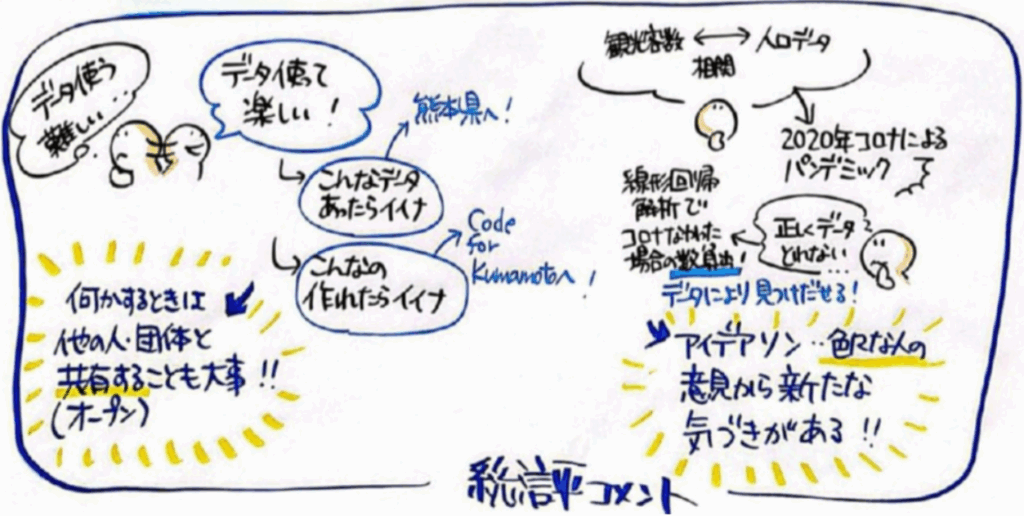 データ使う
難しい…
データ使って
楽しい!
熊本県へ!
こんなデータ
あったらイイナ
こんなの
作れたらイイナ
Code
for
Kumamotoへ!
何かするときは
他の人・団体と
共有することも大事!!
(オープン)
観光客数 ⟷ 人口データ
相関
2020年コロナによる
パンデミック
正しくデータ
とれない…
線形回帰
解析で
コロナなかった
場合の数算出!
データにより見つけだせる!
アイデアソン‥色々な人の
意見から新たな
気づきがある!!
総評コメント